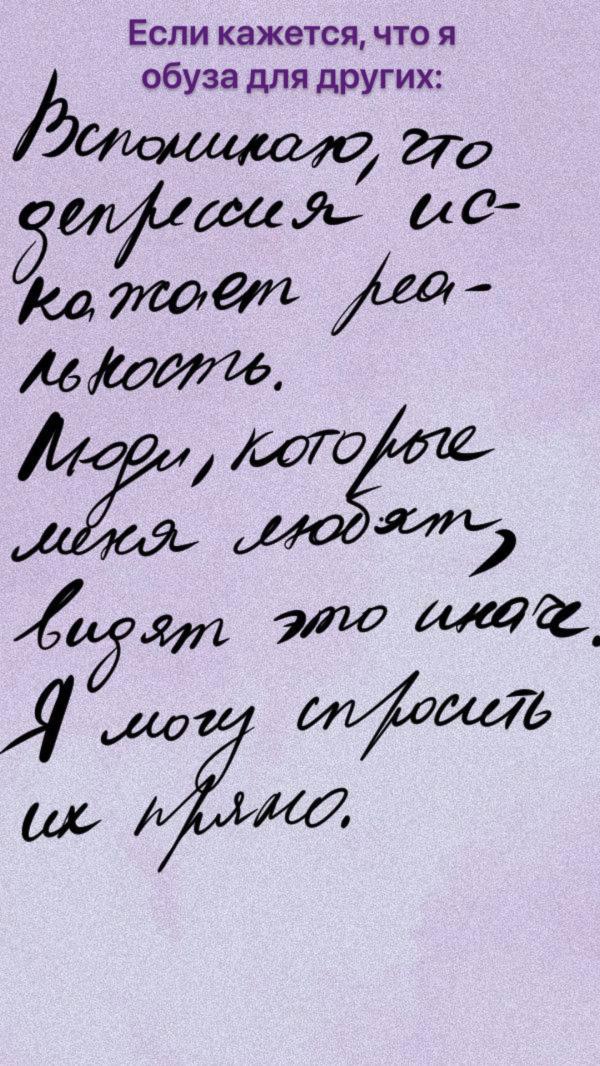 Если кажется, что я
обуза для других:
Вспоминаю, что
депрессия ис-
кажает реа-
льность.
Люди, которые
меня любят,
видят это иначе.
Я могу спросить
их прямо.